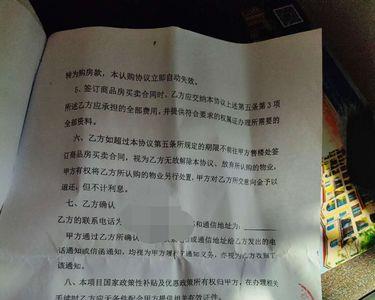 转为购房款，本认购协议立即自动失效。
5、签订商品房买卖合同时，乙方应交纳本协议上述第五条第3项
所述乙方应承担的全部费用，并提供符合要求的权属证办理所需要的
全部资料。
六、乙方如超过本协议第五条所规定的期限不前往甲方售楼处签
订商品房买卖合同，视为乙方无故解除本协议、放弃所认购的物业，
甲方有权将乙方所认购的物业另行处置，甲方对乙方所交意向金予以
退还，但不计利息。
七、乙方确认
乙方的联系电话为 和通信地址为：
甲方通过乙方所确认 或通信地址给乙方发出的电
话通知或信函通知，均视为甲方履行通知义务，亦视为乙方收到了
该通知。
八、本项目国家政策性补贴及优惠政策所有权归甲方，在办理相关
手续时乙方应无条件配合甲方提供相关有效证件。